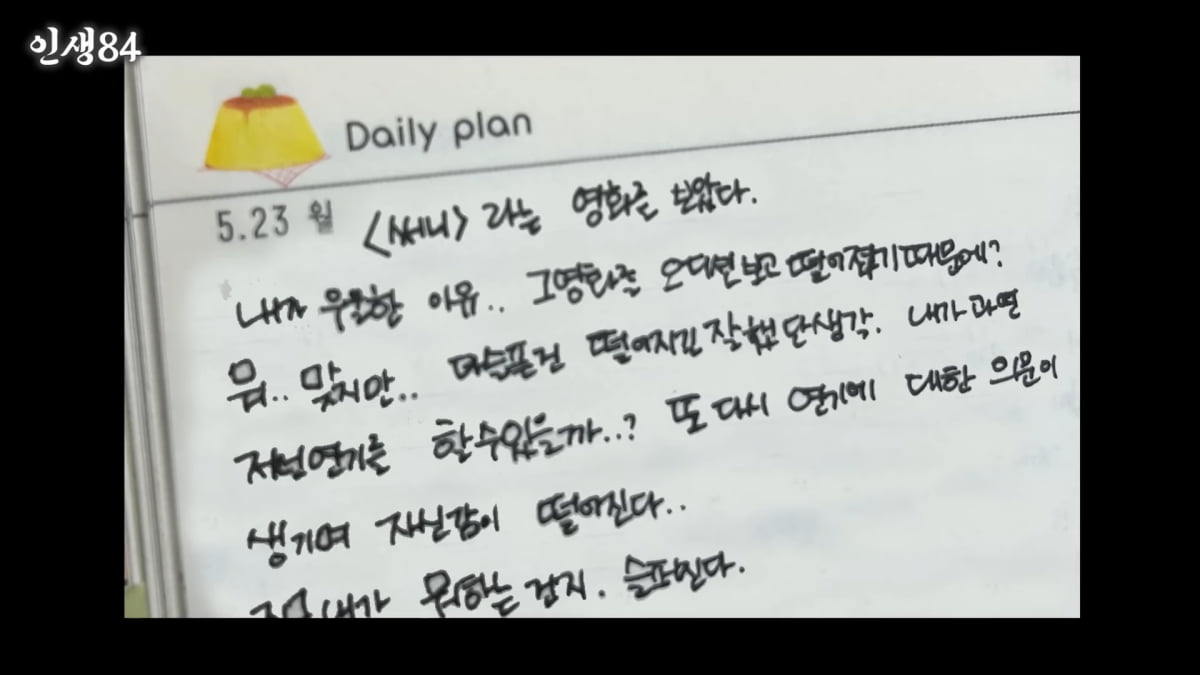 인생84
Daily plan
5.23 월 <써니> 라는 영화를 보았다.
내가 우울한 이유.. 그영화를 오디션보고 떨어졌기때문에?
뭐.. 맞지만.. 더슬픈건 떨어지긴잘했단생각. 내가과연
저런연기를 할수있을까..? 또 다시 연기에 대한 의문이
생기며 자신감이 떨어진다..
내가 뭐하는건지. 슬퍼진다.